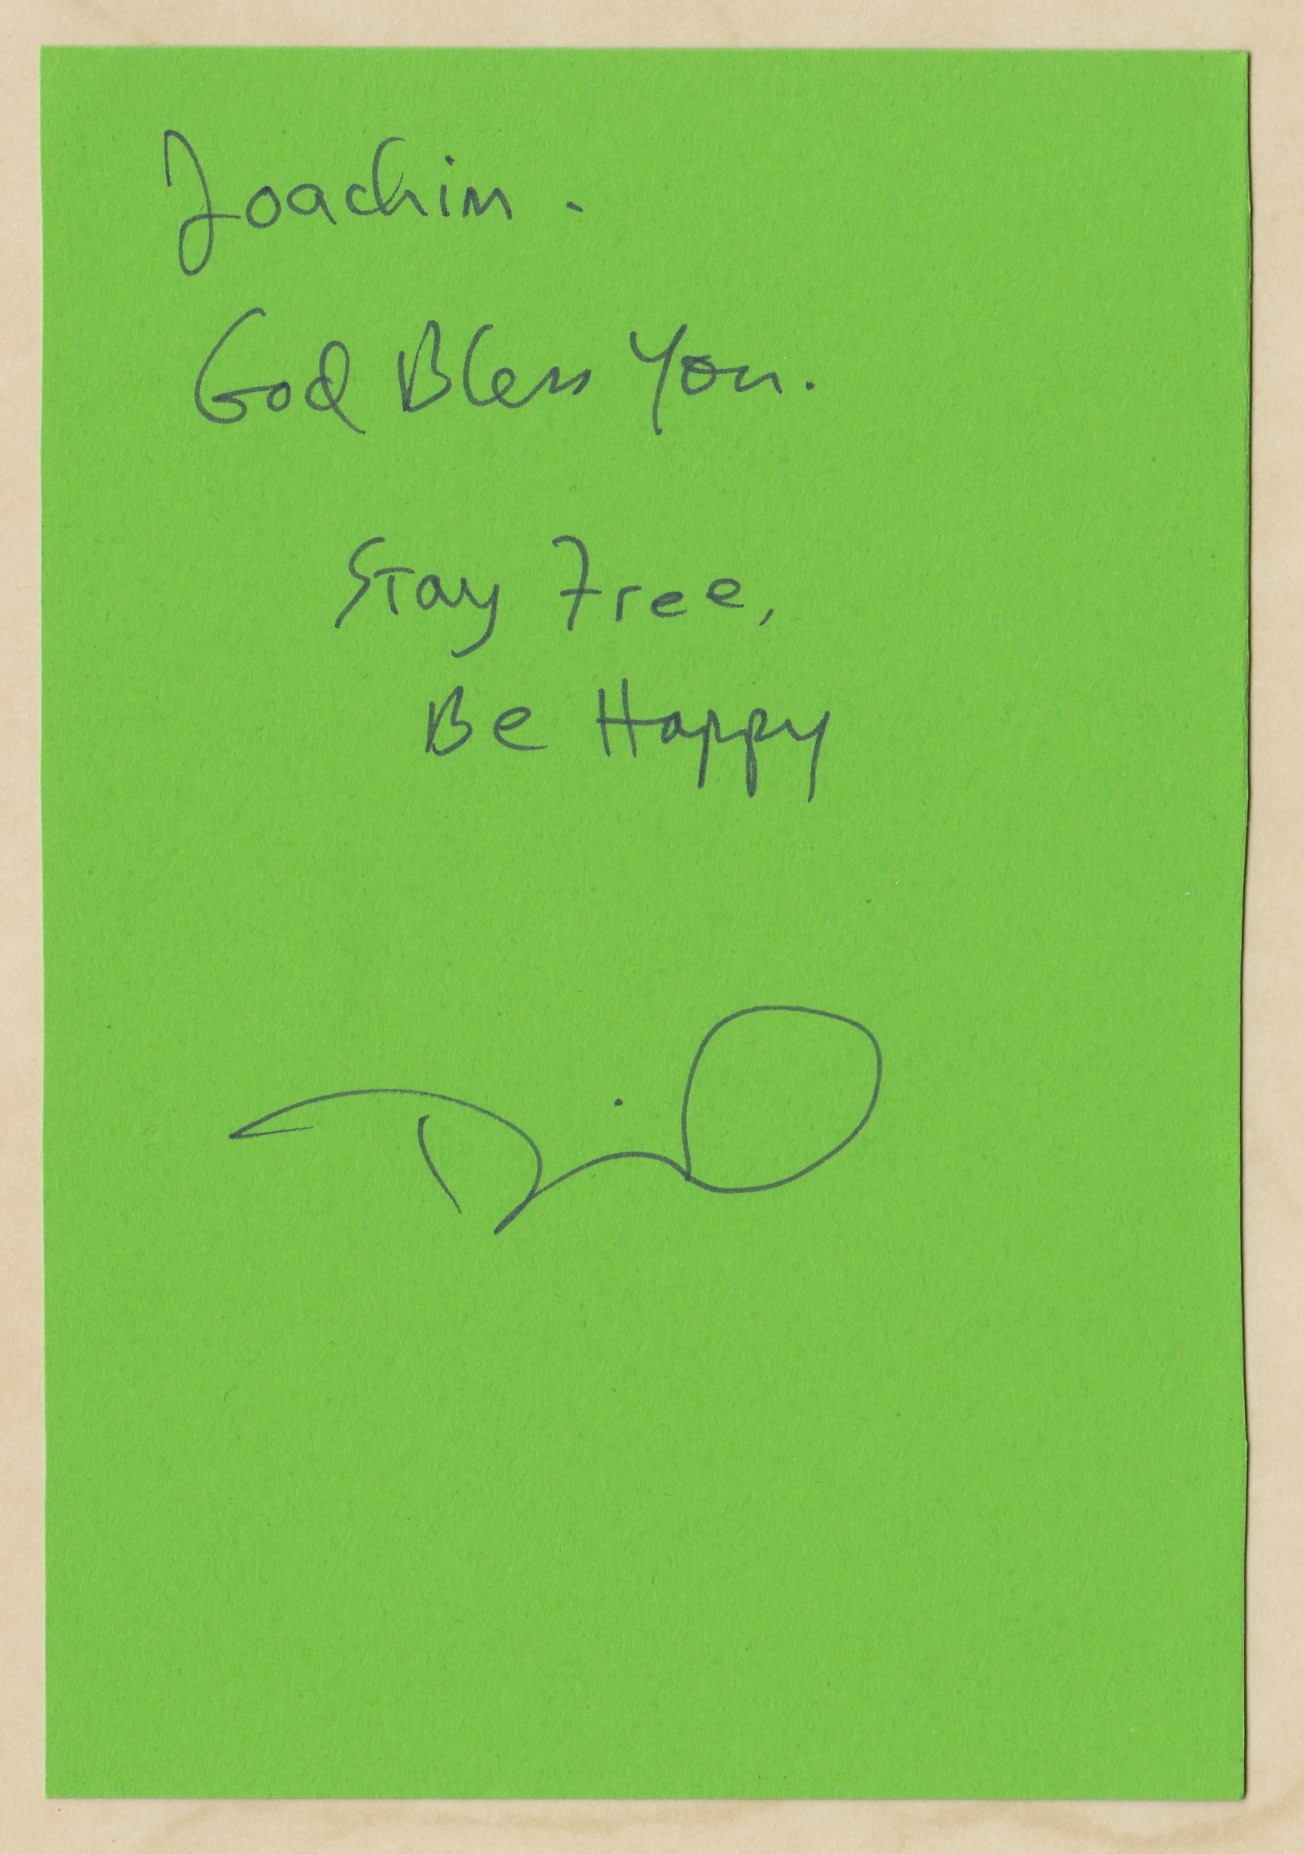 Joachim.
God Bless You.
Stay Free,
Be Happy